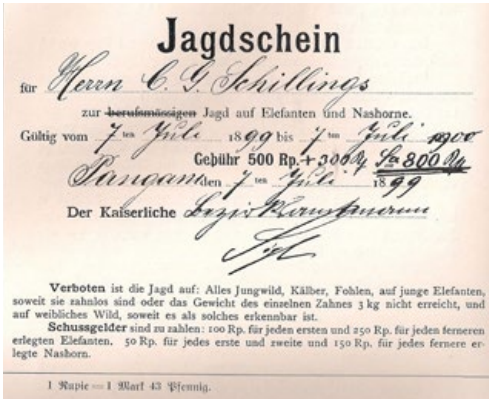 Jagdschein
für Herrn C. G. Schillings
zur berufsmässigen Jagd auf Elefanten und Nashorne.
Gültig vom 7 ten Juli 1899 bis 7 ten Juli 1900
Gebühr 500 Rp. + 300 Rp. Sa 800 Rp
Pangani den 7 ten Juli 1899
Der Kaiserliche Bezirksamtmann
Sigl
Verboten ist die Jagd auf: Alles Jungwild, Kälber, Fohlen, auf junge Elefanten,
soweit sie zahnlos sind oder das Gewicht des einzelnen Zahnes 3 kg nicht erreicht, und
auf weibliches Wild, soweit es als solches erkennbar ist.
Schussgelder sind zu zahlen: 100 Rp. für jeden ersten und 250 Rp. für jeden ferneren
erlegten Elefanten. 50 Rp. für jedes erste und zweite und 150 Rp. für jedes fernere er-
legte Nashorn.
1 Rupie = 1 Mark 43 Pfennig.